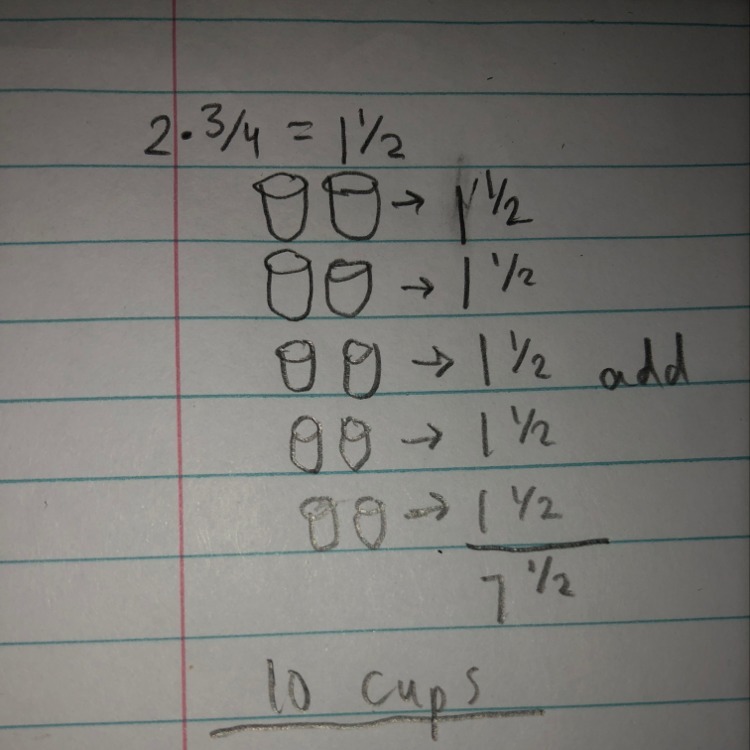 2·3/4 = 1 1/2
→ 1 1/2
→ 1 1/2
→ 1 1/2 add
→ 1 1/2
→ 1 1/2
7 1/2
10 cups